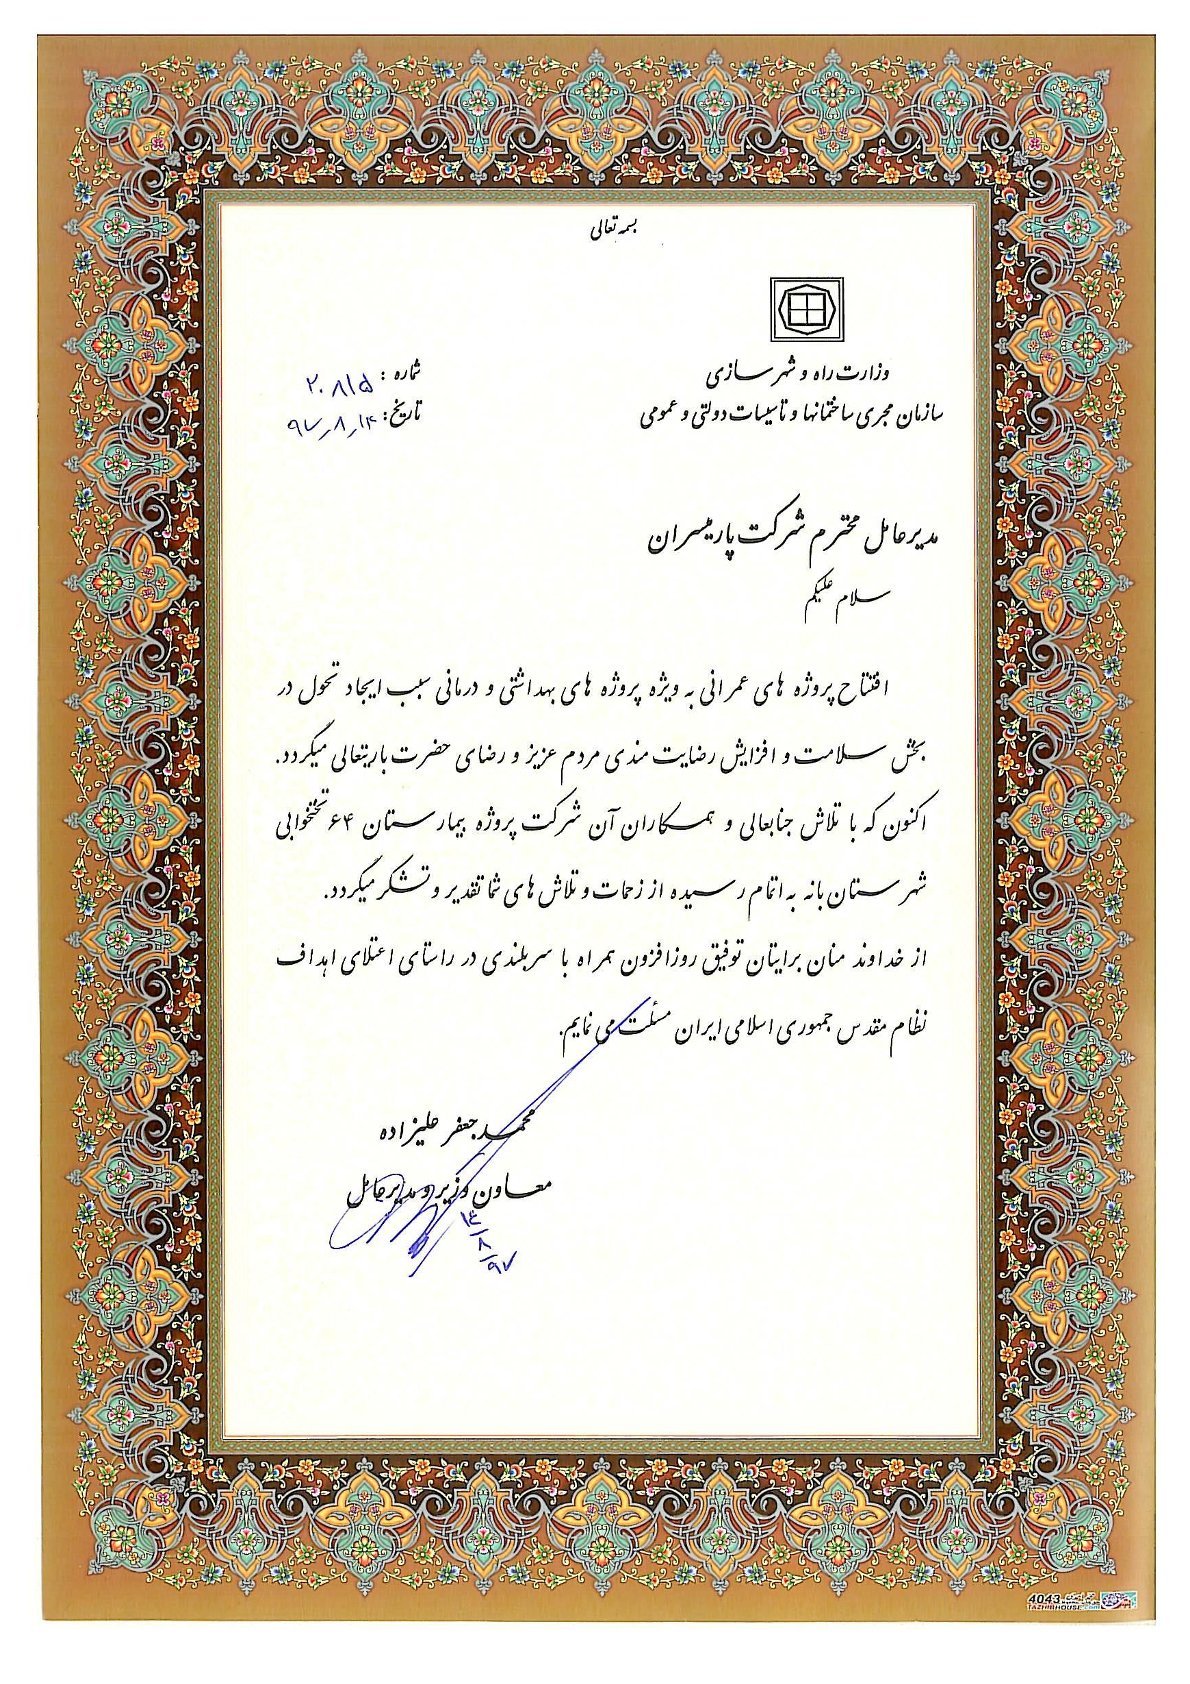 بسمه تعالی
وزارت راه و شهرسازی
سازمان مجری ساختمانها و تاسیسات دولتی و عمومی
شماره : ۲۰۸۱۵
تاریخ: ۹۷٫۸٫۱۴
مدیرعامل محترم شرکت پارمیسران
سلام علیکم
افتتاح پروژه های عمرانی به ویژه پروژه های بهداشتی و درمانی سبب ایجاد تحول در
بخش سلامت و افزایش رضایت مندی مردم عزیز و رضای حضرت باریتعالی میگردد.
اکنون که با تلاش جنابعالی و همکاران آن شرکت پروژه بیمارستان ۶۴ تختخوابی
شهرستان بانه به اتمام رسیده از زحمات و تلاش های شما تقدیر و تشکر میگردد.
از خداوند منان برایتان توفیق روزافزون همراه با سربلندی در راستای اعتلای اهداف
نظام مقدس جمهوری اسلامی ایران مسئلت می نمایم.
محمدجعفر علیزاده
معاون وزیر و مدیرعامل
۱۴/۸/۹۷
4043
TAZHIBHOUSE.com